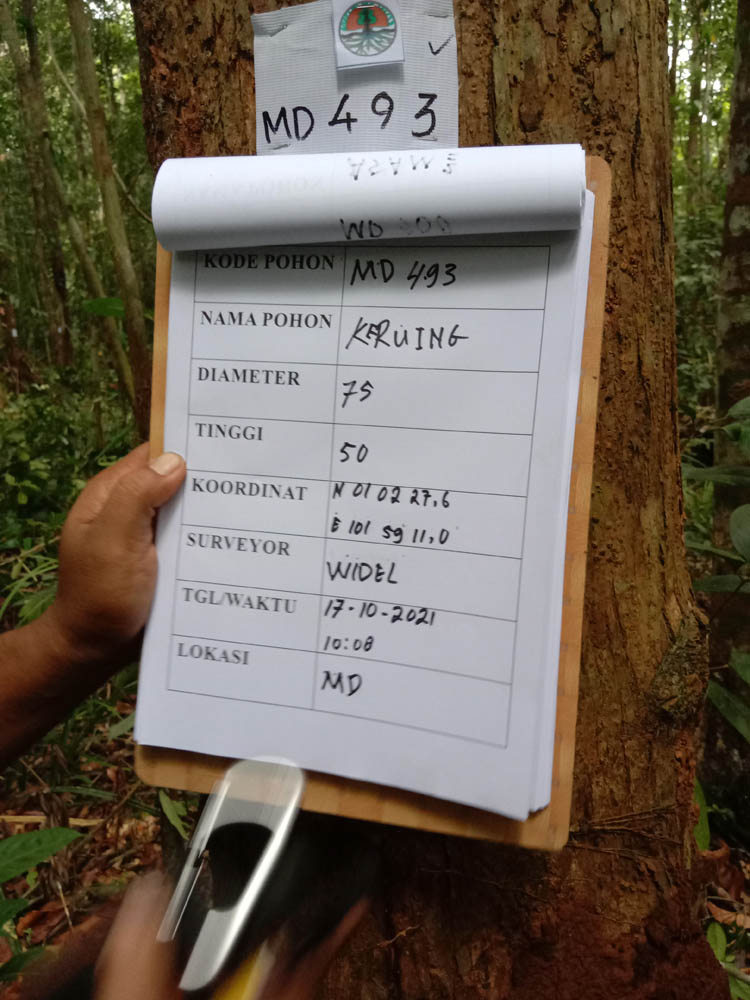 MD 493
KODE POHON MD 493
NAMA POHON KERUING
DIAMETER 75
TINGGI 50
KOORDINAT N 01 02 27,6
E 101 59 11,0
SURVEYOR WIDEL
TGL/WAKTU 17-10-2021
10:08
LOKASI MD